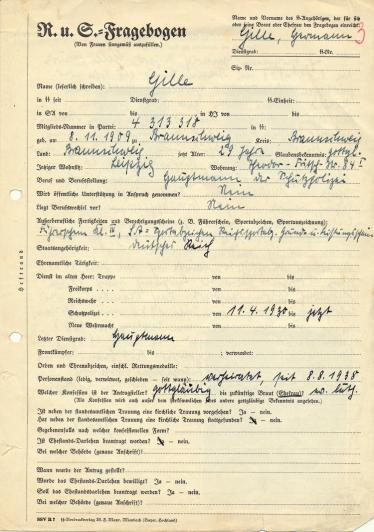 R. u. S.-Fragebogen
(Von Frauen sinngemäß auszufüllen.)
Name und Vorname des SS-Angehörigen, der für sich
oder seine Braut oder Ehefrau den Fragebogen einreicht:
Gille, Hermann
3
Dienstgrad: SS-Nr.
Sip. Nr.
Gille
Name (leserlich schreiben):
in SS seit Dienstgrad: SS-Einheit:
in SA von bis , in HJ von bis
Mitglieds-Nummer in Partei: 4 313 318 in SS:
geb. am: 8. 11. 1909 zu Braunschweig Kreis: Braunschweig
Land: Braunschweig jetzt Alter: 29 Jahre Glaubensbekenntnis: gottgl.
Jetziger Wohnsitz: Leipzig Wohnung: Theodor-Fritsch-Str. 84 I
Beruf und Berufsstellung: Hauptmann der Schutzpolizei
Wird öffentliche Unterstützung in Anspruch genommen? Nein
Liegt Berufswechsel vor? Nein
Außerberufliche Fertigkeiten und Berechtigungsscheine (z. B. Führerschein, Sportabzeichen, Sportauszeichnung):
Führerschein Kl. III, SA-Sportabzeichen, Reichssportabz. Grund- u.
Staatsangehörigkeit: Deutsches Reich
Ehrenamtliche Tätigkeit:
Dienst im alten Heer: Truppe von bis
Freikorps von bis
Reichswehr von bis
Schutzpolizei von 11. 4. 1930 bis jetzt
Neue Wehrmacht von bis
Letzter Dienstgrad: Hauptmann
Frontkämpfer: bis ; verwundet:
Orden und Ehrenabzeichen, einschl. Rettungsmedaille:
Personenstand (ledig, verwitwet, geschieden – seit wann): verheiratet, seit 8. 8. 1938
Welcher Konfession ist der Antragsteller? gottgläubig die zukünftige Braut (Ehefrau)? ev. luth.
(Als Konfession wird auch außer dem herkömmlichen jedes andere gottgläubige Bekenntnis angesehen.)
Ist neben der standesamtlichen Trauung eine kirchliche Trauung vorgesehen? Ja – nein.
Hat neben der standesamtlichen Trauung eine kirchliche Trauung stattgefunden? Ja – nein.
Gegebenenfalls nach welcher konfessionellen Form?
Ist Ehestands-Darlehen beantragt worden? Ja – nein.
Bei welcher Behörde (genaue Anschrift)?
Wann wurde der Antrag gestellt?
Wurde das Ehestands-Darlehen bewilligt? Ja – nein.
Soll das Ehestands-Darlehen beantragt werden? Ja – nein.
Bei welcher Behörde (genaue Anschrift)?
Heftrand